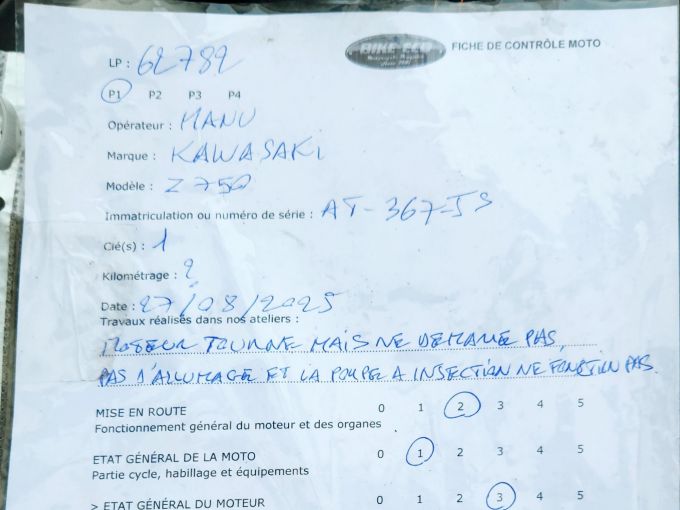 BIKE-ECO
FICHE DE CONTRÔLE MOTO
LP : 62782
P1 P2 P3 P4
Opérateur : MANU
Marque : KAWASAKI
Modèle : Z 750
Immatriculation ou numéro de série : AT-367-JS
Clé(s) : 1
Kilométrage : ?
Date : 27/08/2025
Travaux réalisés dans nos ateliers :
MOTEUR TOURNE MAIS NE DEMARE PAS,
PAS D'ALLUMAGE ET LA POMPE A INJECTION NE FONCTION PAS.
MISE EN ROUTE 0 1 2 3 4 5
Fonctionnement général du moteur et des organes
ETAT GÉNÉRAL DE LA MOTO 0 1 2 3 4 5
Partie cycle, habillage et équipements
> ETAT GÉNÉRAL DU MOTEUR 0 1 2 3 4 5